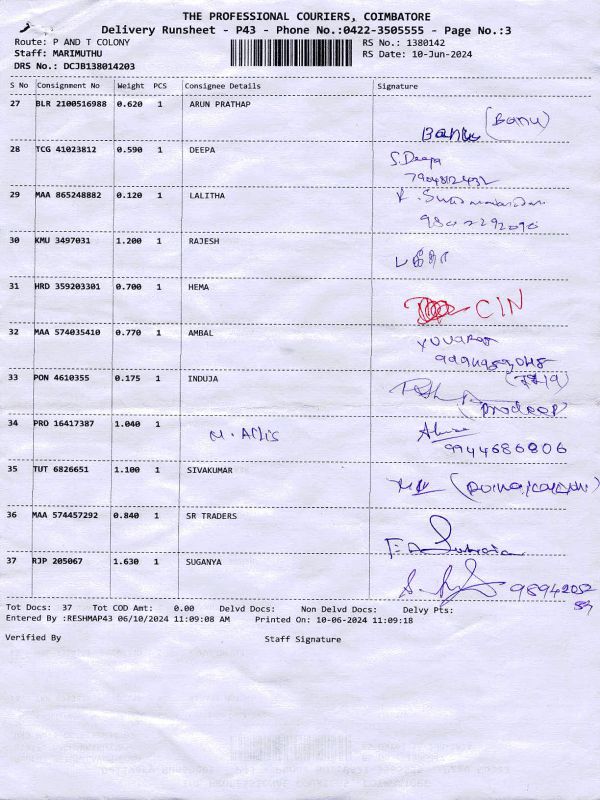 THE PROFESSIONAL COURIERS, COIMBATORE
Delivery Runsheet - P43 - Phone No.:0422-3505555 - Page No.:3
Route: P AND T COLONY RS No.: 1380142
Staff: MARIMUTHU RS Date: 10-Jun-2024
DRS No.: DCJB138014203
S No Consignment No Weight PCS Consignee Details Signature
27 BLR 2100516988 0.620 1 ARUN PRATHAP
Banu (Banu)
28 TCG 41023812 0.590 1 DEEPA S. Deepa
29 MAA 865248882 0.120 1 LALITHA
30 KMU 3497031 1.200 1 RAJESH
31 HRD 359203301 0.700 1 HEMA
CIN
32 MAA 574035410 0.770 1 AMBAL
33 PON 4610355 0.175 1 INDUJA
(Pradeep)
34 PRO 16417387 1.040 1
9944686806
35 TUT 6826651 1.100 1 SIVAKUMAR
36 MAA 574457292 0.840 1 SR TRADERS
37 RJP 205067 1.630 1 SUGANYA
Tot Docs: 37 Tot COD Amt: 0.00 Delvd Docs: Non Delvd Docs: Delvy Pts:
Entered By :RESHMAP43 06/10/2024 11:09:08 AM Printed On: 10-06-2024 11:09:18
Verified By Staff Signature